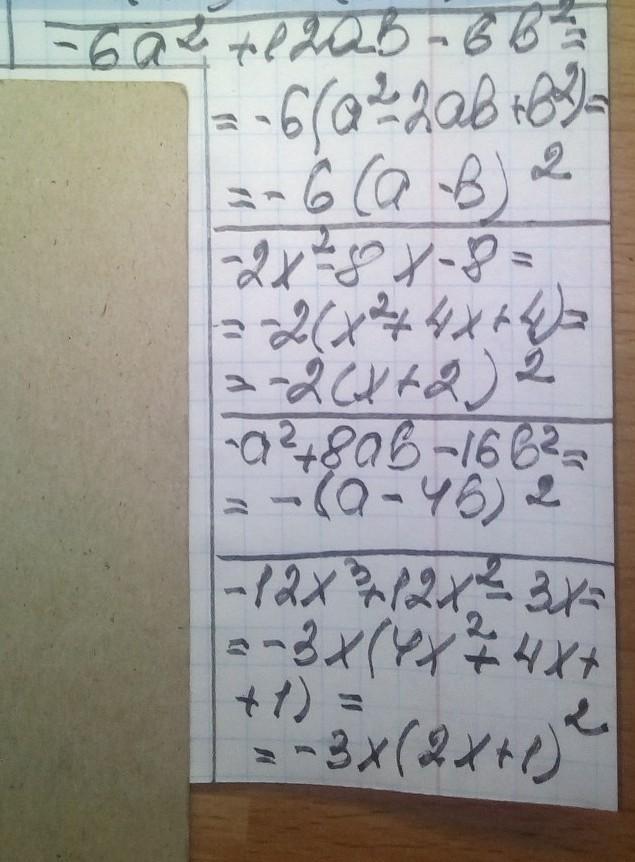 -6a² +12ab - 6b²=
= -6(a²-2ab+b²)=
= -6(a-b)²
-2x²-8x-8=
= -2(x²+4x+4)=
= -2(x+2)²
-a²+8ab-16b²=
= -(a-4b)²
-12x³+12x²-3x=
= -3x(4x²+4x+
+1) =
= -3x(2x+1)²